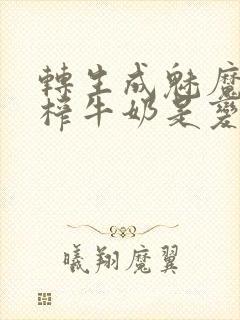 轉生成魅魔
榨牛奶是變
曦翔魔翼